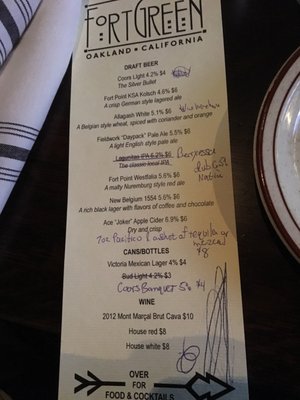 FORT GREEN
OAKLAND • CALIFORNIA
DRAFT BEER
Coors Light 4.2% $4
The Silver Bullet
Fort Point KSA Kolsch 4.6% $6
A crisp German style lagered ale
Allagash White 5.1% $6
A Belgian style wheat, spiced with coriander and orange
Fieldwork "Daypack" Pale Ale 5.5% $6
A light English style pale ale
Lagunitas IPA 6.2% $6
The classic local IPA
Fort Point Westfalia 5.6% $6
A malty Nuremburg style red ale
New Belgium 1554 5.6% $6
A rich black lager with flavors of coffee and chocolate
Ace "Joker" Apple Cider 6.9% $6
Dry and crisp
7oz Pacifico & a shot of tequila or
mezcal
$8
CANS/BOTTLES
Victoria Mexican Lager 4% $4
Bud Light 4.2% $3
Coors Banquet 5% $4
WINE
2012 Mont Marçal Brut Cava $10
House red $8
House white $8
OVER
FOR
FOOD & COCKTAILS